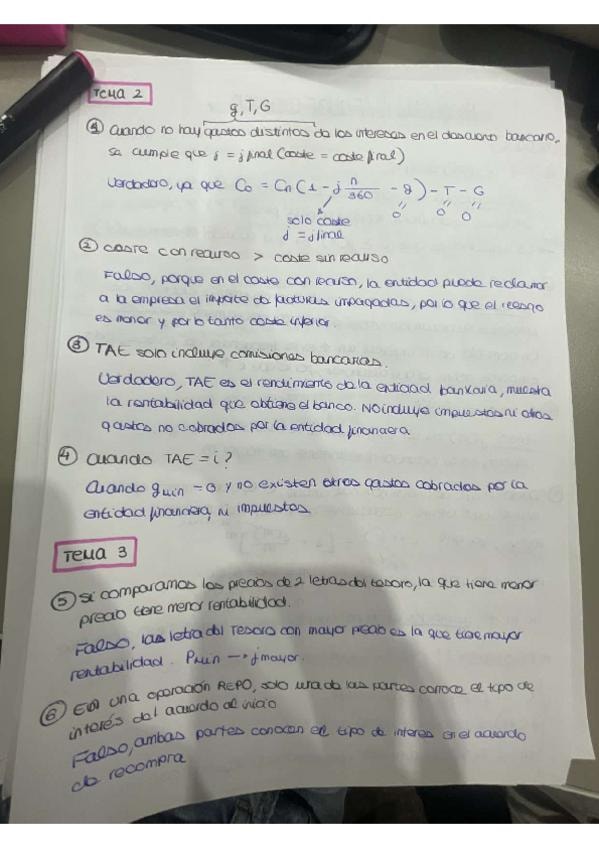 Tema 2
g, T, G
① Cuando no hay gastos distintos de los intereses en el descuento bancario,
se cumple que j = jfinal (coste = coste final)
Verdadero, ya que Co = Cn (1 - j n/360 - g) - T - G
" " "
0 0 0
solo coste
j = jfinal
② coste con recurso > coste sin recurso
Falso, porque en el coste con recurso, la entidad puede reclamar
a la empresa el importe de facturas impagadas, por lo que el riesgo
es menor y por lo tanto coste inferior.
③ TAE solo incluye comisiones bancarias.
Verdadero, TAE es el rendimiento de la entidad bankaria, muestra
la rentabilidad que obtiene el banco. No incluye impuestos ni otros
gastos no cobrados por la entidad financiera
④ Cuando TAE = i?
Cuando = 0 y no existen otros gastos cobrados por la
entidad financiera, ni impuestos.
Tema 3
⑤ Si comparamos los precios de 2 letras del tesoro, la que tiene menor
precio tiene menor rentabilidad.
Falso, las letra del Tesoro con mayor precio es la que tiene mayor
rentabilidad. → j mayor.
⑥ En una operación REPO, solo una de las partes conoce el tipo de
interés del acuerdo al inicio
Falso, ambas partes conocen el tipo de interes en el acuerdo
de recompra